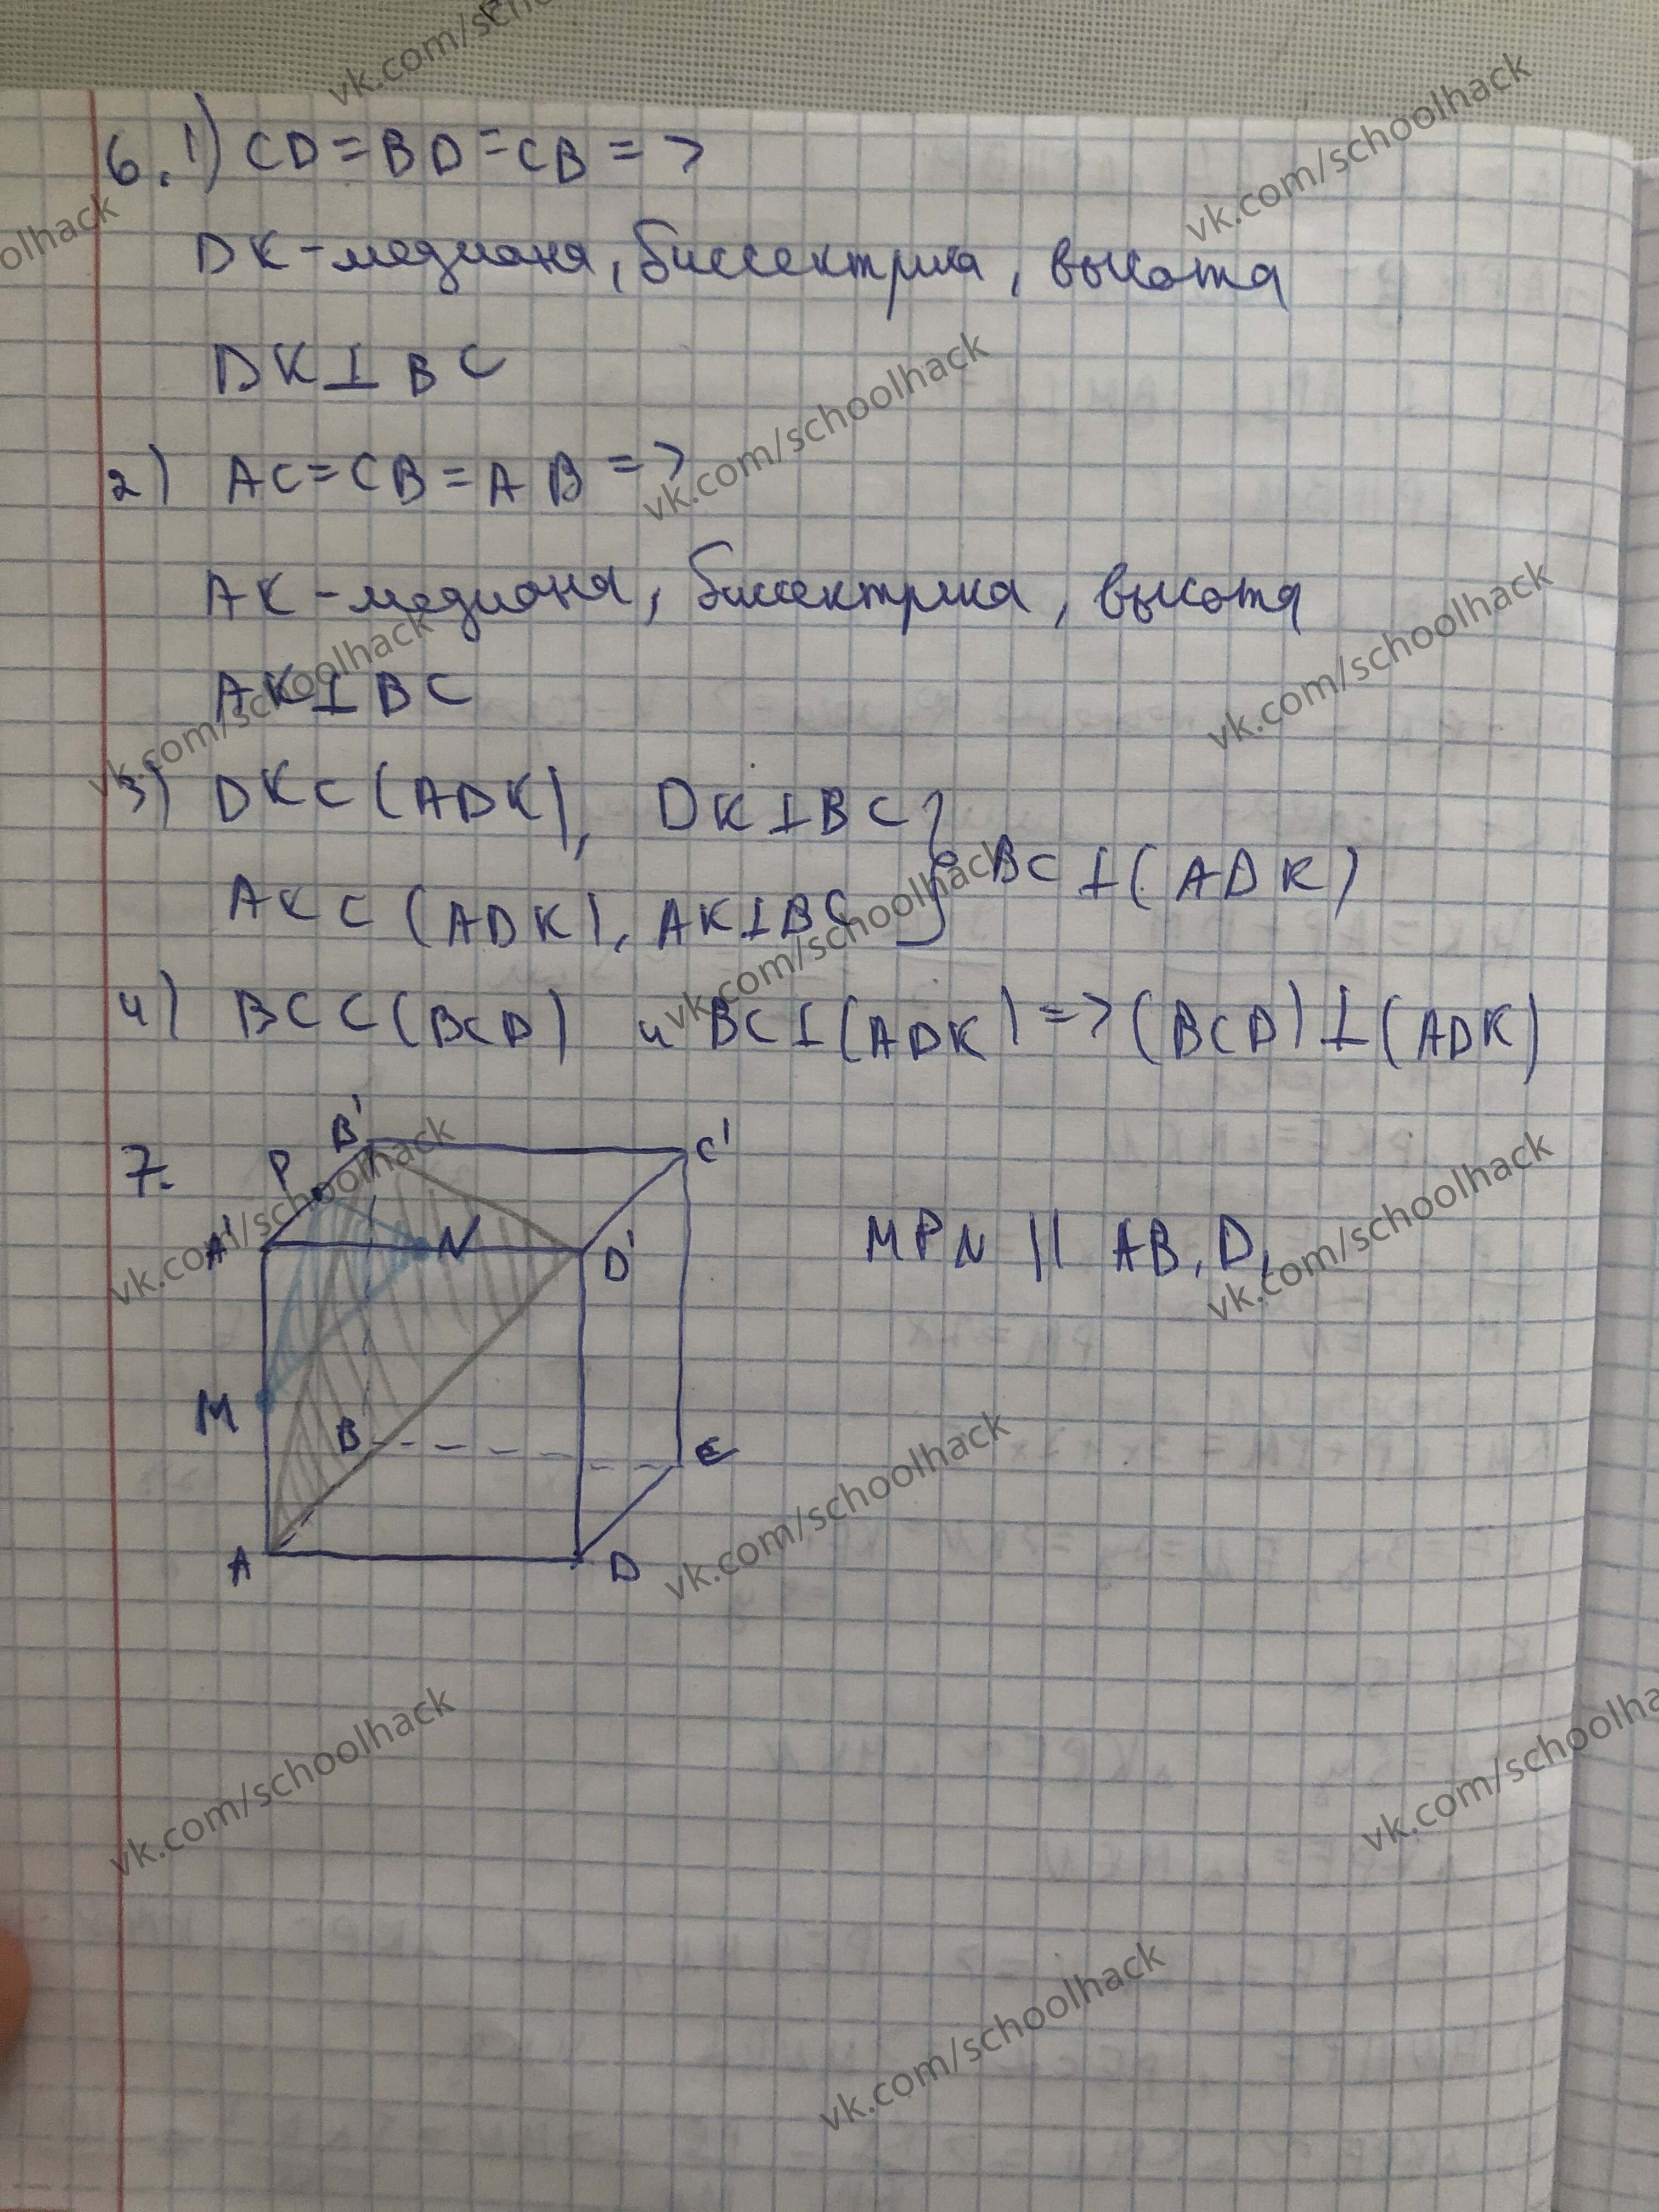 6. 1) CD = BD = CB =>
DK - медиана, биссектриса, высота
DK ⊥ BC
2) AC = CB = AB =>
AK - медиана, биссектриса, высота
AK ⊥ BC
3) DK ⊂ (ADK), DK ⊥ BC
AK ⊂ (ADK), AK ⊥ BC
BC ⊥ (ADK)
4) BC ⊂ (BCD) и BC ⊥ (ADK) => (BCD) ⊥ (ADK)
7.
B'
C'
P
A'
N
D'
MPN || AB₁D₁
M
B
C
A
D
vk.com/schoolhack
vk.com/schoolhack
vk.com/schoolhack
vk.com/schoolhack
vk.com/schoolhack
vk.com/schoolhack
vk.com/schoolhack
vk.com/schoolhack
vk.com/schoolhack
vk.com/schoolhack
vk.com/schoolhack
vk.com/schoolhack